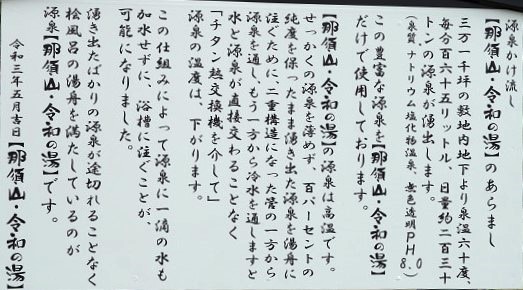 源泉かけ流し
【那須山・令和の湯】のあらまし
三万一千坪の敷地内地下より泉温六十度、
毎分百六十五リットル、日量約二百三十
トンの源泉が湧出します。
(泉質 ナトリウム塩化物温泉、無色透明PH8.0)
この豊富な源泉を【那須山・令和の湯】
だけで使用しております。
【那須山・令和の湯】の源泉は高温です。
せっかくの源泉を薄めず、百パーセントの
純度を保ったまま湧き出た源泉を湯舟に
注ぐために、二重構造になった管の一方から
源泉を通し、もう一方から冷水を通しますと
水と源泉が直接交わることなく
「チタン熱交換機を介して」
源泉の温度は、下がります。
この仕組みによって源泉に一滴の水も
加水せずに、浴槽に注ぐことが、
可能になりました。
湧き出たばかりの源泉が途切れることなく
桧風呂の湯舟を満たしているのが
源泉【那須山・令和の湯】です。
令和三年五月吉日【那須山・令和の湯】